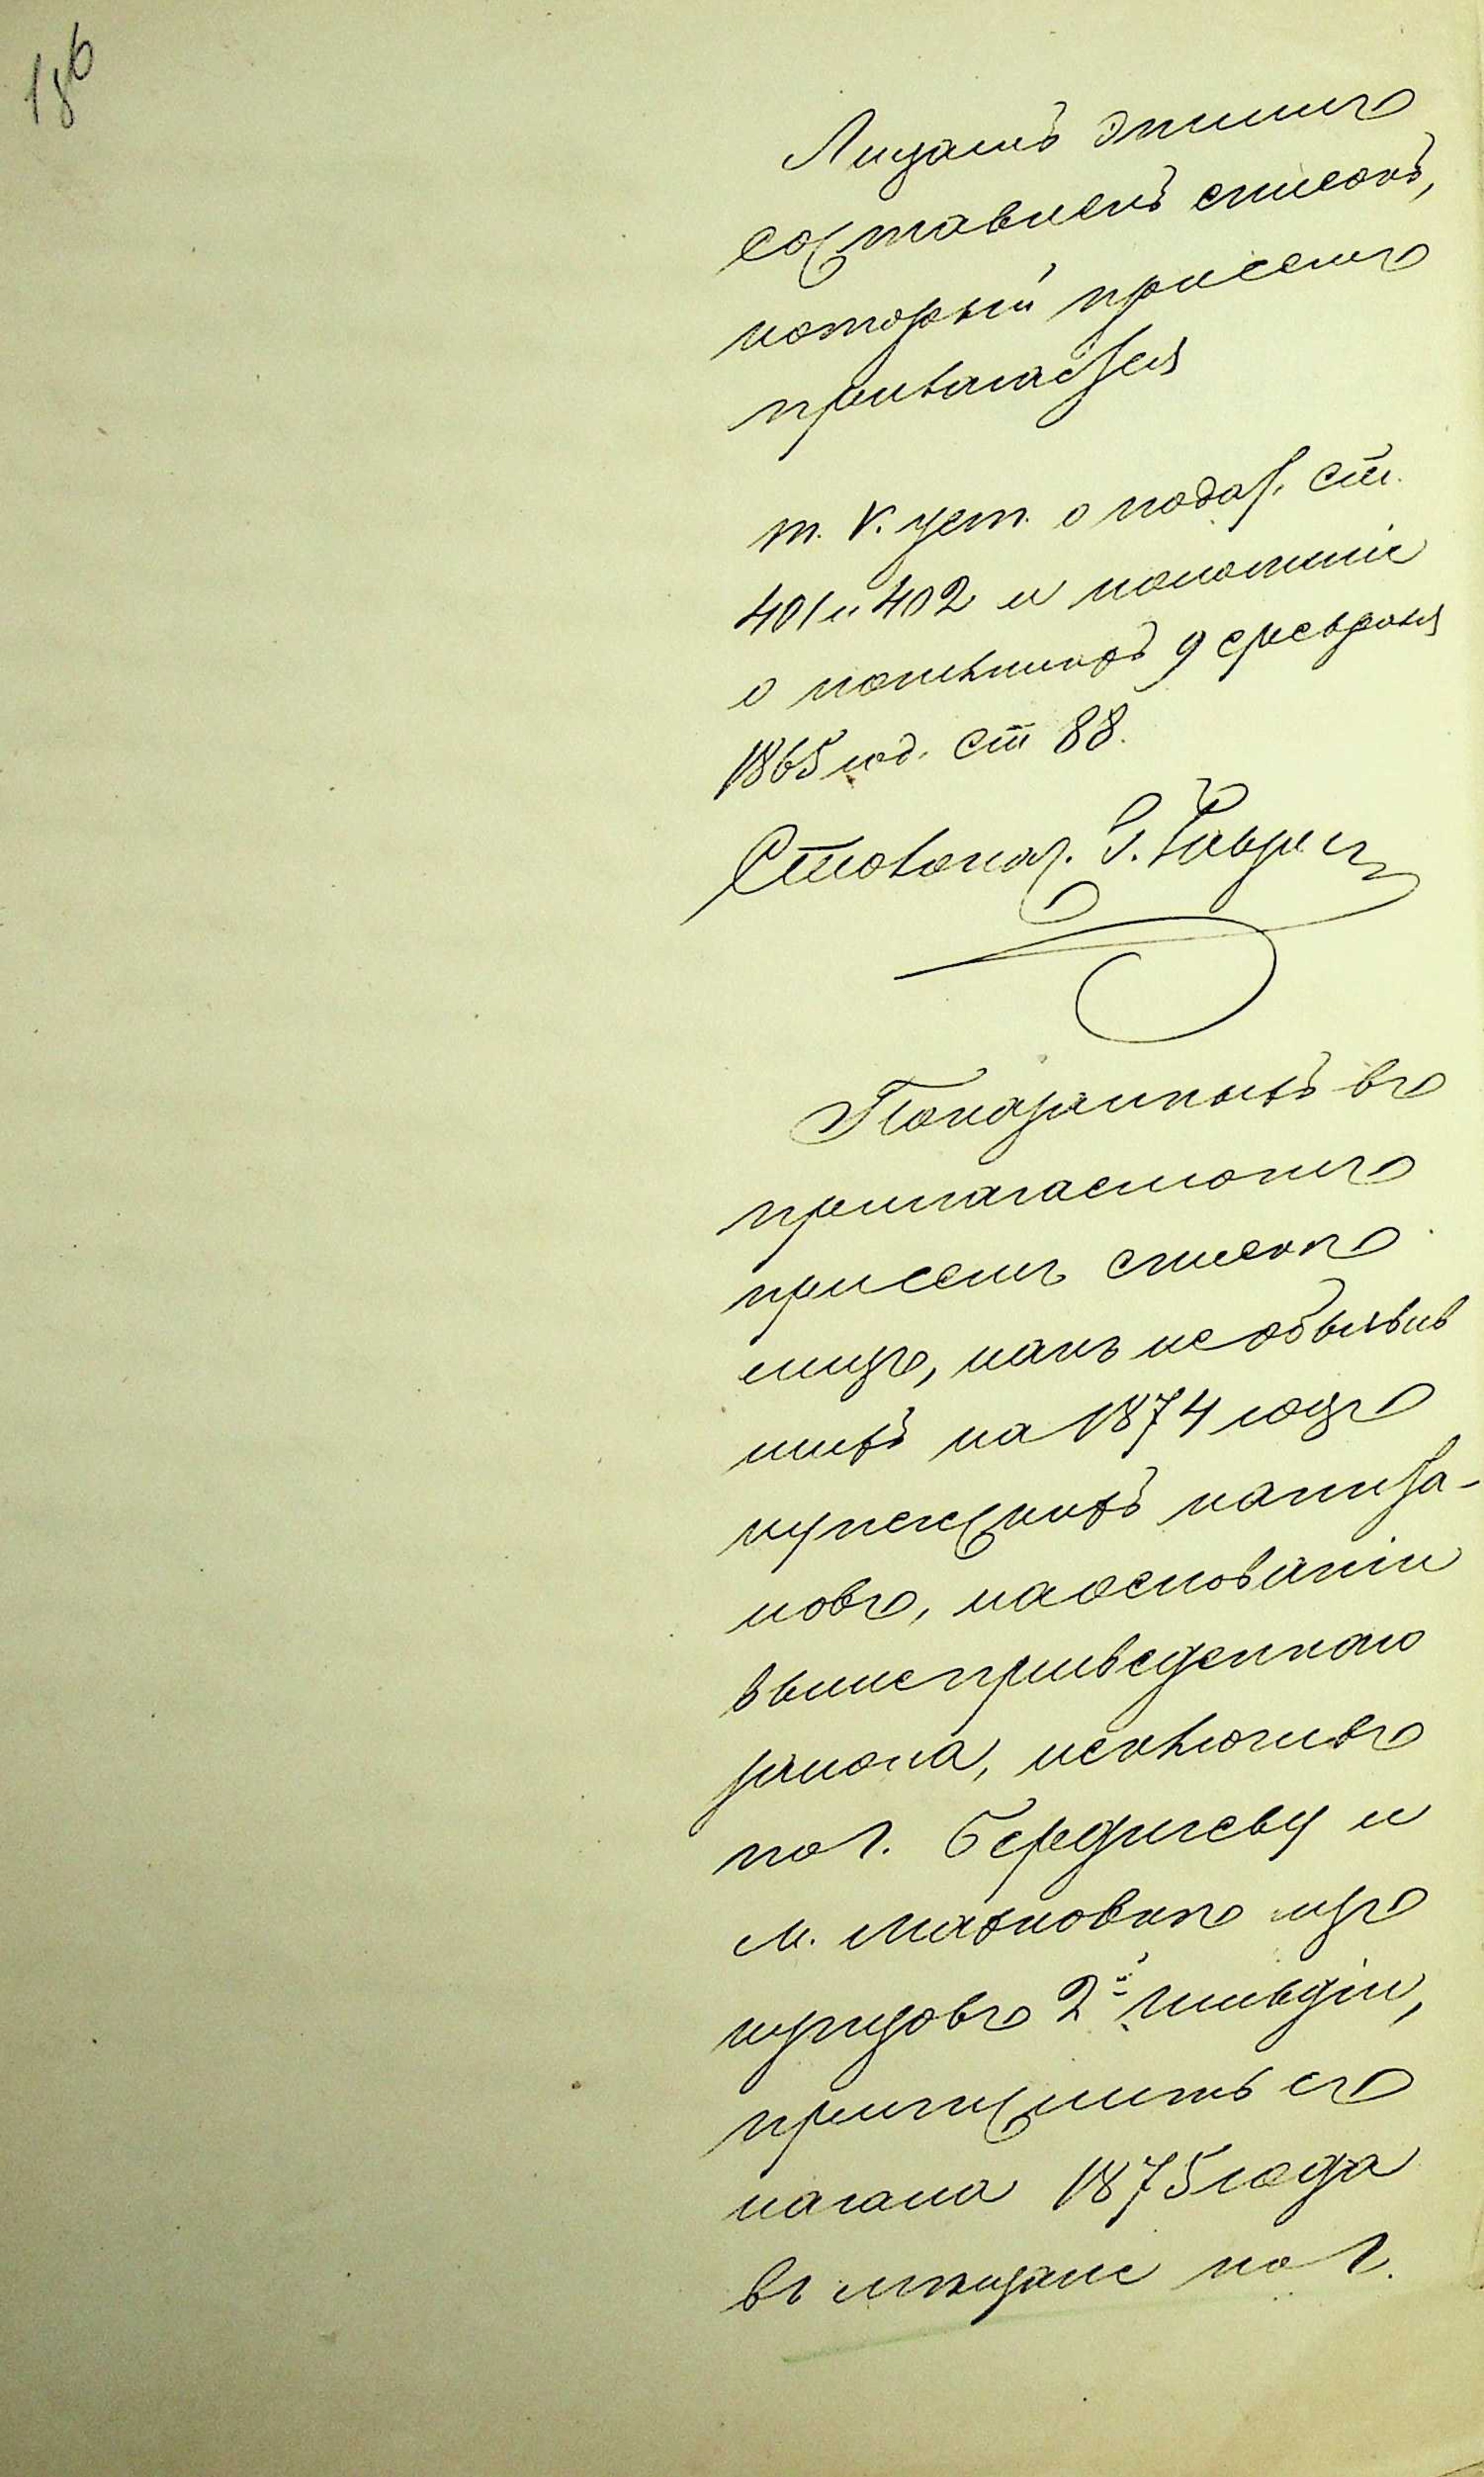 186
Лицамъ этимъ
составленъ списокъ,
который при семъ
прилагается
т. V. уст. о подат. ст.
401 и 402 и положеніе
о пошлинахъ 9 февраля
1865 год. ст 88.
Столонач.
Показанныхъ въ
прилагаемомъ
при семъ спискѣ
лицъ, какъ не объявив
шихъ на 1874 годъ
купеческихъ капита-
ловъ, на основаніи
вышеприведеннаго
закона, исключивъ
по г. Бердичеву и
м. Махновкѣ изъ
купцовъ 2й гильдіи,
причислить съ
начала 1875 года
въ мѣщане по г.